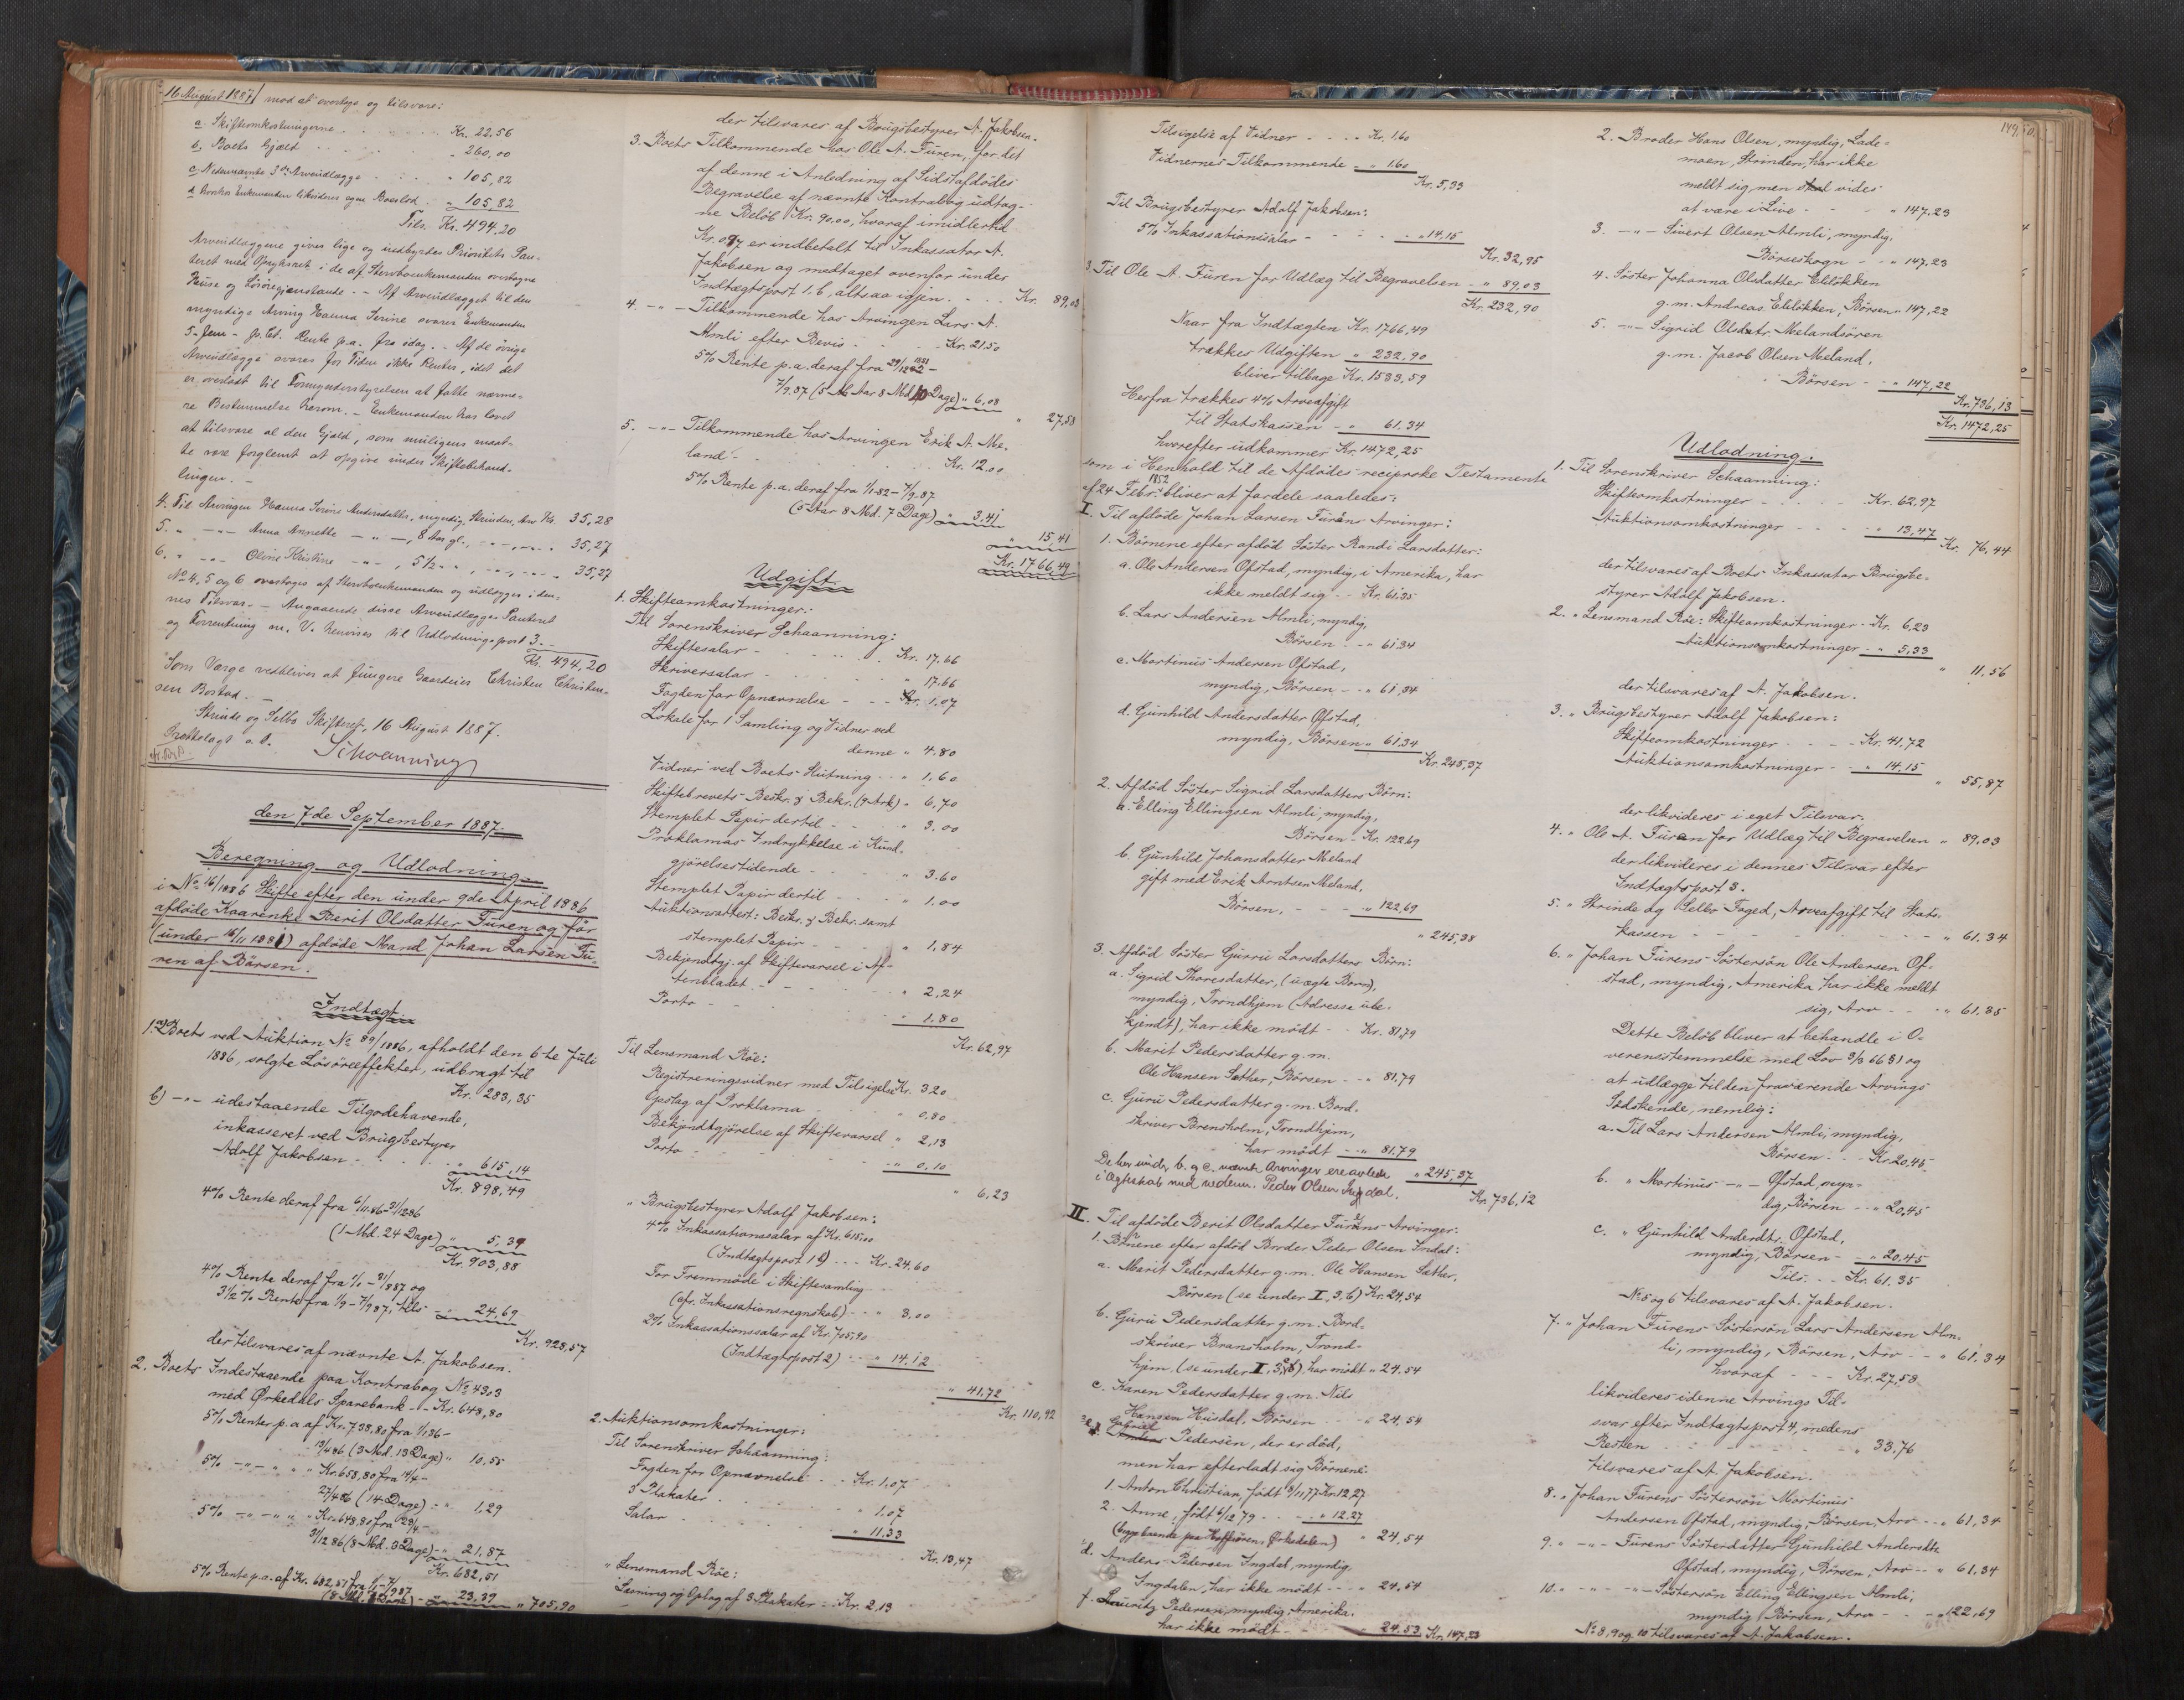 16 August 1887 mod at overtage og tilsvare:
a. Skifteomkostningerne . . . Kr. 22,56
b. Boets Gjæld . . . " 260,00
c. Nedennævnte 3 de Arveudlægge . . . " 105,82
d. hvorhos Enkemanden likviderer egen Boeslod . " 105,82
Tils. Kr. 494,20
Arveudlæggene gives lige og indbyrdes Prioritets Pan-
teret med Oprykket i de af Stervboenkemanden overtagne
Huse og Løsøregjenstande. - Af Arveudlægget til den
myndige Arving Hanna Serine svarer Enkemanden
5 - fem - pr. Ct. Rente p.a. fra idag. - Af de øvrige
Arveudlægge svares for Tiden ikke Renter, idet det
er overladt til Formynderstyrelsen at fatte nærme-
re Bestemmelse herom. - Enkemanden har lovet
at tilsvare al den Gjæld, som muligens maat-
te være forglemt at opgive under Skiftebehand-
lingen. -
4. Til Arvingen Hanna Serine Andersdatter, myndig, Strinden, Arv Kr. 35,28
5. " -"- Anna Annette -"-, 8 Aar gl., -"- 35,27
6. " -"- Oline Kristine -"-, 5 1/2 -"- 35,27
No 4, 5 og 6 overtages af Stervboenkemanden og udlægges i den-
nes Tilsvar. - Angaaende disse Arveudlægges Panteret
og Forrentning m. V. henvises til Udlodningspost 3. -
Kr. 494,20
Som Værge vedbliver at fungere Gaardeier Christen Christen-
sen Bostad. -
Strinde og Selbo Skifteret, 16 August 1887.
Grækkelagt o. O.
Schaanning
den 7de September 1887.
Beregning og Udlodning
i No 16/1886 Skifte efter den under 9de April 1886
afdøde Kaarenke Berit Olsdatter Furen og før
(under 16/11 1881) afdøde Mand Johan Larsen Fu-
ren af Børsen.
Indtægt.
1. a) Boets ved Auktion No 89/1886, afholdt den 6te Juli
1886, solgte Løsøreeffekter, udbragt til
Kr. 283,35
b) -"- udestaaende Tilgodehavende,
inkasseret ved Brugsbestyrer
Adolf Jakobsen - . . . " 615,14
Kr. 898,49
4% Rente deraf fra 6/11.86-31/1286
(1 Md. 24 Dage) " 5,39
Kr. 903,88
4% Rente deraf fra 1/1 - 31/887 og
3 1/2 % Rente fra 1/9 - 7/987, tils - " 24,69
Kr. 928,57
der tilsvares af nævnte A. Jakobsen.
2. Boets Indestaaende paa Kontrabog No 4303
med Ørkedals Sparebank - - Kr. 648,80
5% Renter p.a. af Kr. 738,80 fra 1/1 86 -
13/486 (3 Md. 13 Dage) " 10,55
5% -"- " " Kr. 658,80 fra 14/4 -
27/486 (14 Dage) - " 1,29
5% -"- " " Kr. 648,80 fra 28/4 -
31/12 86 (8 Md. 3 Dage) - " 21,87
Kr. 682,51
5% Rente p.a. af Kr. 682,51 fra 1/1 - 7/987
(8 Md. 7 Dage) - " 23,39 " 705,90
der tilsvares af Brugsbestyrer A. Jakobsen.
3. Boets Tilkommende hos Ole A. Furen, for det
af denne i Anledning af Sidstafdødes
Begravelse af nævnte Kontrabog udtag-
ne Beløb Kr. 90,00, hvoraf imidlertid
Kr. 0,97 er indbetalt til Inkassator A.
Jakobsen og medtaget ovenfor under
Indtægtspost 1. b, altsaa igjen. . . . Kr. 89,03
4. -"- Tilkommende hos Arvingen Lars A.
Almli efter Bevis - . . . Kr. 21,50
5% Rente p.a. deraf fra 29/12 1881 -
7/9.87 (5 Aar 8 Md. 10 Dage) " 6,08
" 27,58
5. -"- Tilkommende hos Arvingen Erik A. Me-
land - . . . Kr. 12,00
5% Rente p.a. deraf fra 1/1-82 - 7/9.87
(5 Aar 8 Md. 7 Dage) " 3,41
" 15,41
Kr. 1766,49
Udgift.
1. Skifteomkostninger:
Til Sorenskriver Schaanning:
Skiftesalar - . . . Kr. 17,66
Skriversalar - . . . " 17,66
Fogden for Opnævnelse - - Kr. 1,07
Lokale for 1 Samling og Vidner ved
denne " 4,80
Vidner ved Boets Slutning . . " 1,60
Skiftebrevets Beskr. & Bekr. (9 Ark) " 6,70
Stemplet Papir dertil - - - " 3,00
Proklamas Indrykkelse i Kund-
gjørelsestidende - - - " 3,60
Stemplet Papir dertil - - - " 1,00
Auktionsattest: Beskr. & Bekr. samt
stemplet Papir - - - " 1,84
Bekjendtgj. af Skiftevarsel i Af-
tenbladet - - - " 2,24
Porto - - - " 1,80
Kr. 62,97
Til Lensmand Röe:
Registreringsvidner med Tilsigelse Kr. 3,20
Opslag af Proklama - " 0,80
Bekjendtgjørelse af Skiftevarsel " 2,13
Porto - - - " 0,10
" 6,23
" Brugsbestyrer Adolf Jakobsen:
4% Inkassationssalar af Kr. 615,00
(Indtægtspost 1 b) - - Kr. 24,60
For Fremmøde i Skiftesamling
(cfr. Inkassationsregnskab) - - " 3,00
2% Inkassationssalar af Kr. 705,90
(Indtægtspost 2) - - " 14,12
" 41,72
Kr. 110,92
2. Auktionsomkostninger:
Til Sorenskriver Schaanning:
Fogden for Opnævnelse - - Kr. 1,07
3 Plakater - - - " 1,07
Salar - - - " 11,33
Kr. 13,47
" Lensmand Röe:
Læsning og Oplag af 3 Plakater - Kr. 2,13
Tilsigelse af Vidner - - - - Kr. 1,60
Vidnernes Tilkommende - " 1,60
Kr. 5,33
Til Brugsbestyrer Adolf Jakobsen:
5% Inkassationssalar - - - " 14,15
Kr. 32,95
3. Til Ole A. Furen for Udlæg til Begravelsen - " 89,03
Kr. 232,90
Naar fra Indtægten Kr. 1766,49
trækkes Udgiften " 232,90
bliver tilbage Kr. 1533,59
Herfra trækkes 4% Arveafgift
til Statskassen - " 61,34
hvorefter udkommer Kr. 1472,25
som i Henhold til de Afdødes reciproke Testamente
af 24 Febr. 1852 bliver at fordele saaledes:
I. Til afdøde Johan Larsen Furens Arvinger:
1. Børnene efter afdød Søster Randi Larsdatter:
a. Ole Andersen Ofstad, myndig, i Amerika, har
ikke meldt sig - - Kr. 61,35
b. Lars Andersen Almli, myndig,
Børsen - - " 61,34
c. Martinus Andersen Ofstad,
myndig, Børsen - - " 61,34
d. Gunhild Andersdatter Ofstad,
myndig, Børsen " 61,34
Kr. 245,37
2. Afdød Søster Sigrid Larsdatters Børn:
a. Elling Ellingsen Almli, myndig,
Børsen - Kr. 122,69
b. Gunhild Johansdatter Meland
gift med Erik Arntsen Meland,
Børsen, - - - " 122,69
" 245,38
3. Afdød Søster Guru Larsdatters Børn:
a. Sigrid Thoresdatter, (uægte Barn),
myndig, Trondhjem (Adresse ube-
kjendt), har ikke mødt - - Kr. 81,79
b. Marit Pedersdatter g. m.
Ole Hansen Sæther, Børsen - - " 81,79
c. Guru Pedersdatter g. m. Bord-
skriver Brensholm, Trondhjem,
har mødt - - " 81,79
De her under b. og c. nævnte Arvinger ere avlede " 245,37
i Ægteskab med nedenn. Peder Olsen Ingdal. Kr. 736,12
II. Til afdøde Berit Olsdatter Furens Arvinger:
1. Børnene efter afdød Broder Peder Olsen Indal:
a. Marit Pedersdatter g. m. Ole Hansen Sæther,
Børsen (se under I, 3, b) Kr. 24,54
b. Guru Pedersdatter g. m. Bord-
skriver Bransholm, Trond-
hjem (se under I, 3, c), har mødt " 24,54
c. Karen Pedersdatter g. m. Nils
Hansen Husdal, Børsen - - - " 24,54
Gabriel Pedersen, der er død,
men har efterladt sig Børnene:
1. Anton Christian, født 8/11,77 Kr. 12,27
2. Anne, født 6/12 79 - - - " 12,27
(begge boende paa , Ørkedalen) " 24,54
d. Anders Pedersen Ingdal, myndig,
Ingdalen, har ikke mødt - - - " 24,54
f. Lauritz Pedersen, myndig, Amerika,
har ikke mødt - - - " 24,53 Kr. 147,23
149,10.
2. Broder Hans Olsen, myndig, Lade-
moen, Strinden, har ikke
meldt sig, men skal vides
at være i Live - - - " 147,23
3. -"- Sivert Olsen Almli, myndig,
Børseskogn - - " 147,23
4. Søster Johanna Olsdatter Ebløkken
g. m. Andreas Ebløkken, Børsen " 147,22
5. -"- Sigrid Olsdatr. Melandsøren
g. m. Jacob Olsen Meland,
Børsen - - " 147,22
Kr. 736,13
Kr. 1472,25
Udlodning.
1. Til Sorenskriver Schaanning:
Skifteomkostninger - - - Kr. 62,97
Auktionsomkostninger - - - " 13,47
Kr. 76,44
der tilsvares af Boets Inkassator Brugsbe-
styrer Adolf Jakobsen.
2. " Lensmand Röe: Skifteomkostninger - Kr. 6,23
Auktionsomkostninger - " 5,33
" 11,56
der tilsvares af A. Jakobsen.
3. " Brugsbestyrer Adolf Jakobsen:
Skifteomkostninger - - - Kr. 41,72
Auktionsomkostninger - - " 14,15
" 55,87
der likvideres i eget Tilsvar.
4. " Ole A. Furen for Udlæg til Begravelsen " 89,03
der likvideres i dennes Tilsvar efter
Indtægtspost 3.
5. " Strinde og Selbo Foged, Arveafgift til Stats-
kassen - - - " 61,34
6. " Johan Furens Søstersøn Ole Andersen Of-
stad, myndig, Amerika, har ikke meldt
sig, Arv - - - " 61,35
Dette Beløb bliver at behandle i O-
verensstemmelse med Lov 3/3 66 § 1 og
at udlægge til den fraværende Arvings
Sødskende, nemlig:
a. Til Lars Andersen Almli, myndig,
Børsen - - - Kr. 20,45
b. " Martinus -"- Ofstad, myn-
dig, Børsen - - " 20,45
c. " Gunhild Andersdtr. Ofstad,
myndig, Børsen - - " 20,45
Tils. - - Kr. 61,35
No 5 og 6 tilsvares af A. Jakobsen.
7. " Johan Furens Søstersøn Lars Andersen Alm-
li, myndig, Børsen, Arv - - " 61,34
hvoraf - - - Kr. 27,58
likvideres i denne Arvings Til-
svar efter Indtægtspost 4, medens
Resten - - - " 33,76
tilsvares af A. Jakobsen.
8. " Johan Furens Søstersøn Martinus
Andersen Ofstad, myndig, Børsen, Arv - - " 61,34
9. " -"- Furens Søsterdatter Gunhild Andersdtr.
Ofstad, myndig, Børsen, Arv - - " 61,34
10. " -"- -"- Søstersøn Elling Ellingsen Almli,
myndig, Børsen, Arv - - - " 122,69
No 8, 9 og 10 tilsvares af A. Jakobsen.